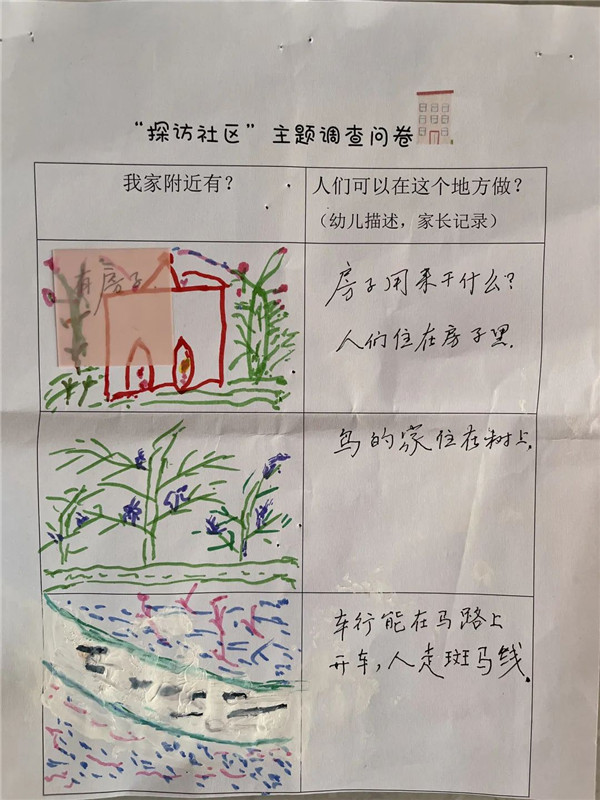 “探访社区”主题调查问卷
我家附近有?
人们可以在这个地方做?
(幼儿描述,家长记录)
有房子
房子用来干什么?
人们住在房子里.
鸟的家住在树上.
车行能在马路上
开车,人走斑马线.